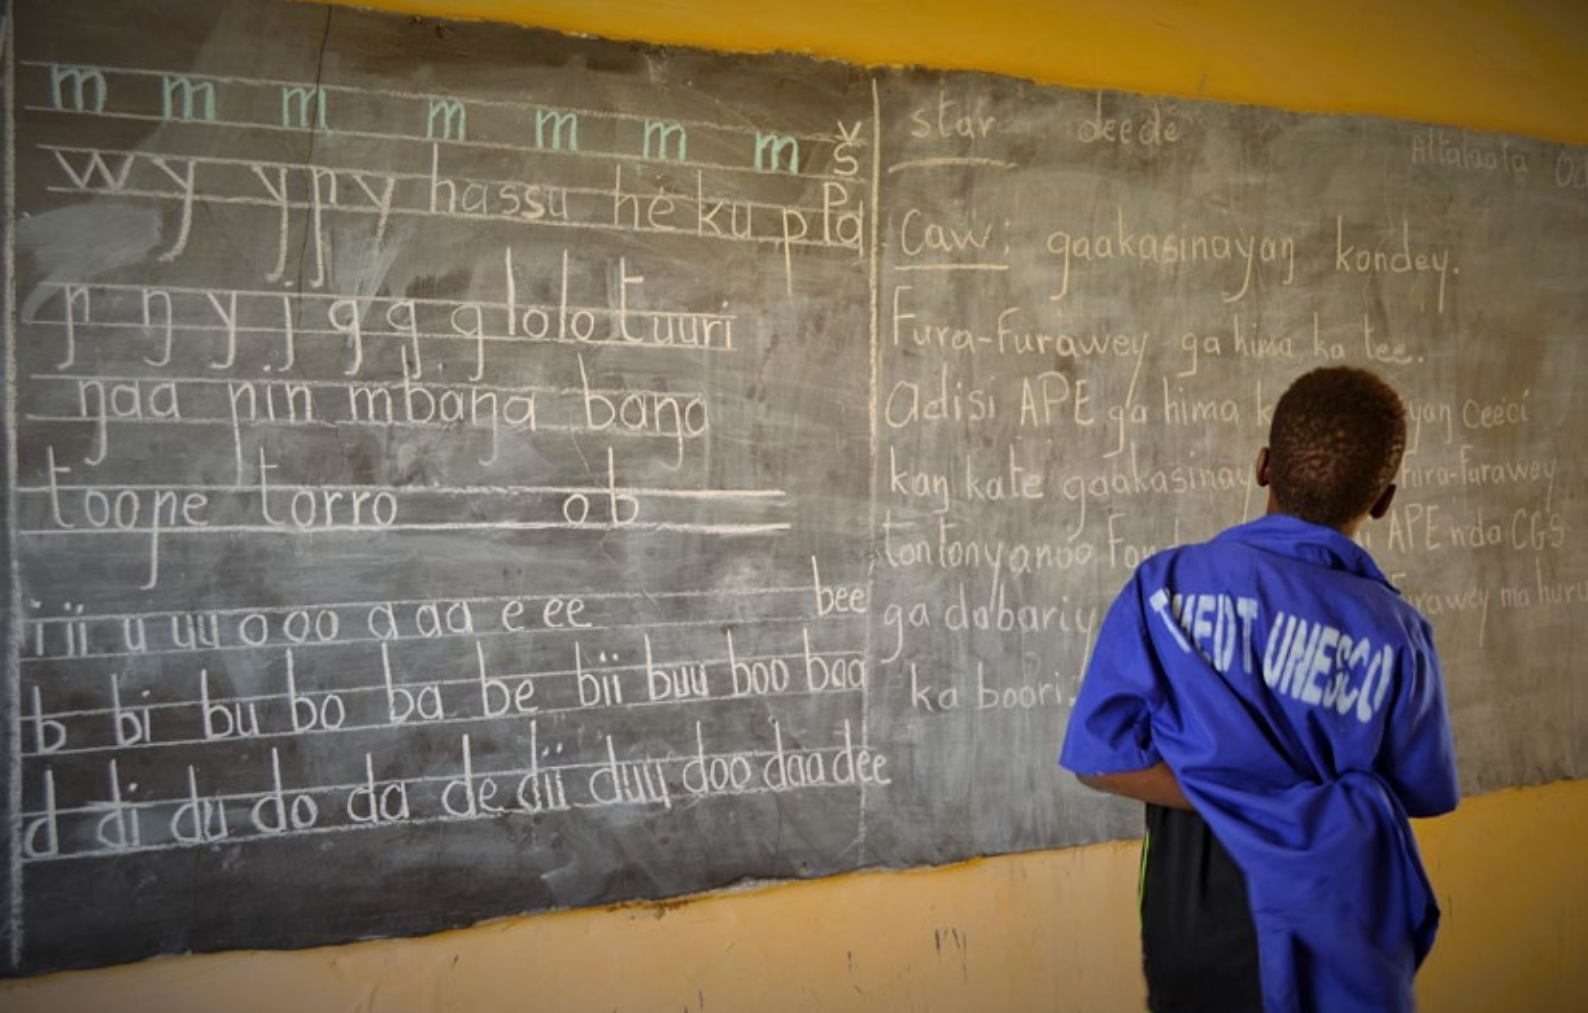 m m m m m m m š
w y y ɲ y hassu he ku p
ɲ ŋ y j g g g lolo tuuri
ŋaa ɲin mbaŋa baŋa
tooɲe torro o b
i ii u uu o oo a aa e ee bee
b bi bu bo ba be bii buu boo baa
d di du do da de dii duu doo daa dee
star deede
Attalaata
Caw: gaakasinayaŋ kondey.
Fura-furawey ga hima ka tee.
adisi APE ga hima yaŋ ceeci
kaŋ kate gaakasinay fura-furawey
tontonyanoo APE nda CGS
ga dabariy ma huru
ka boori.
UNESCO